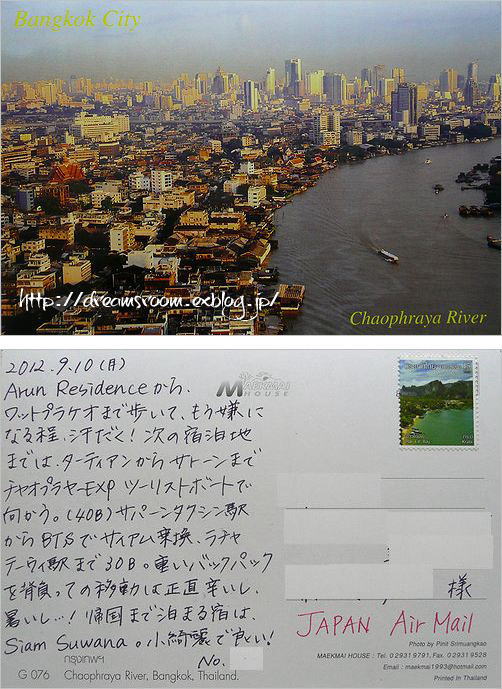 Bangkok City
http://dreamsroom.exblog.jp/
Chaophraya River
2012.9.10(月)
Arun Residenceから、
ワットプラケオまで歩いて、もう嫌に
なる程、汗だく!次の宿泊地
までは、ターティアンからサトーンまで
チャオプラヤーEXPツーリストボートで
向かう。(40B)サパーンタクシン駅
からBTSでサイアム乗換、ラチャ
テーウィ駅まで30B。重いバックパック
を背負っての移動は正直辛いし、
暑いし…!帰国まで泊まる宿は、
Siam Suwana。小綺麗で良い!
No.
MAEKMAI
HOUSE
様
JAPAN Air Mail
Photo by Pinit Srimuangkao
MAEKMAI HOUSE : Tel. 0 2931 9791, Fax. 0 2931 9528
Email : maekmai1993@hotmail.com
Printed in Thailand
กรุงเทพฯ
G 076 Chaophraya River, Bangkok, Thailand.